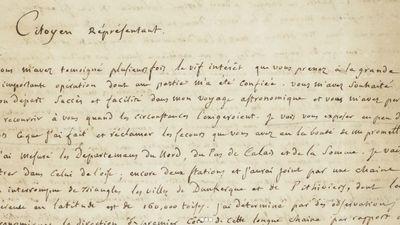 Citoyen Réprésentant.
ous m'avez temoigné plusieurs fois le vif intérêt que vous prenez à la grande
importante operation dont une partie m'a été confiée. vous m'avez souhaité
on depart succès et facilité dans mon voyage astronomique et vous m'avez per
recourir à vous quand les circonstances l'exigeroient. je vais vous exposer en peu d
ce que j'ai fait et réclamer les secours que vous avez eu la bonté de me promett
j'ai mesuré les Départemens du Nord, du Pas de Calais et de la Somme. je vai
trer dans celui de l'oise; encore deux stations et j'aurai joint par une chaine
interrompue de triangles, les villes de Dunkerque et de Pithiviers, dont la
érence en latitude est de 160,000 toises. j'ai determiné par des observations
onomiques la direction du premier côté de cette longue chaine par rapport a